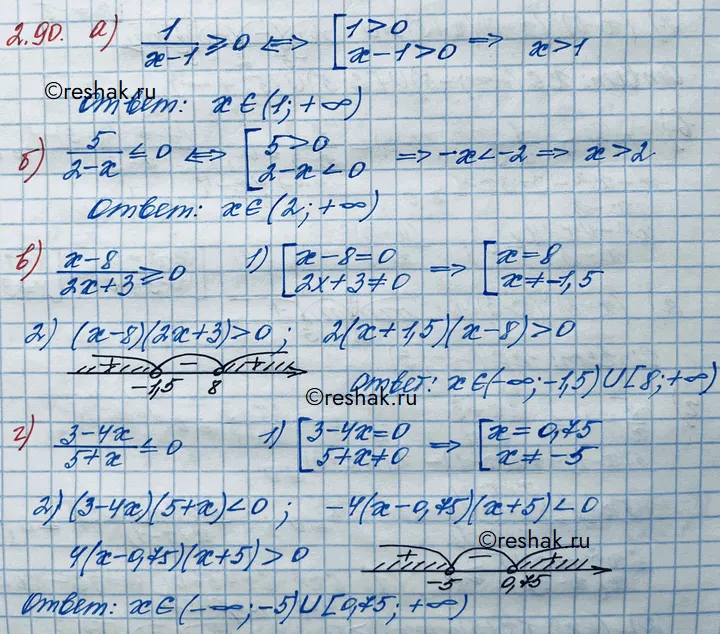 2.90. а) 1/(x-1) ≥ 0 ⟺ [1>0 x-1>0 ⟹ x>1
©reshak.ru
Ответ: x∈(1; +∞)
б) 5/(2-x) ≤ 0 ⟺ [5>0 2-x<0 ⟹ -x<-2 ⟹ x>2
Ответ: x∈(2; +∞)
в) (x-8)/(2x+3) ≥ 0 1) [x-8=0 2x+3≠0 ⟹ [x=8 x≠-1,5
2) (x-8)(2x+3)>0; 2(x+1,5)(x-8)>0
+ - +
-1,5 8
Ответ: x∈(-∞; -1,5)∪[8; +∞)
©reshak.ru
г) (3-4x)/(5+x) ≤ 0 1) [3-4x=0 5+x≠0 ⟹ [x=0,75 x≠-5
2) (3-4x)(5+x)<0; -4(x-0,75)(x+5)<0
©reshak.ru
4(x-0,75)(x+5)>0
+ - +
-5 0,75
Ответ: x∈(-∞; -5)∪[0,75; +∞)